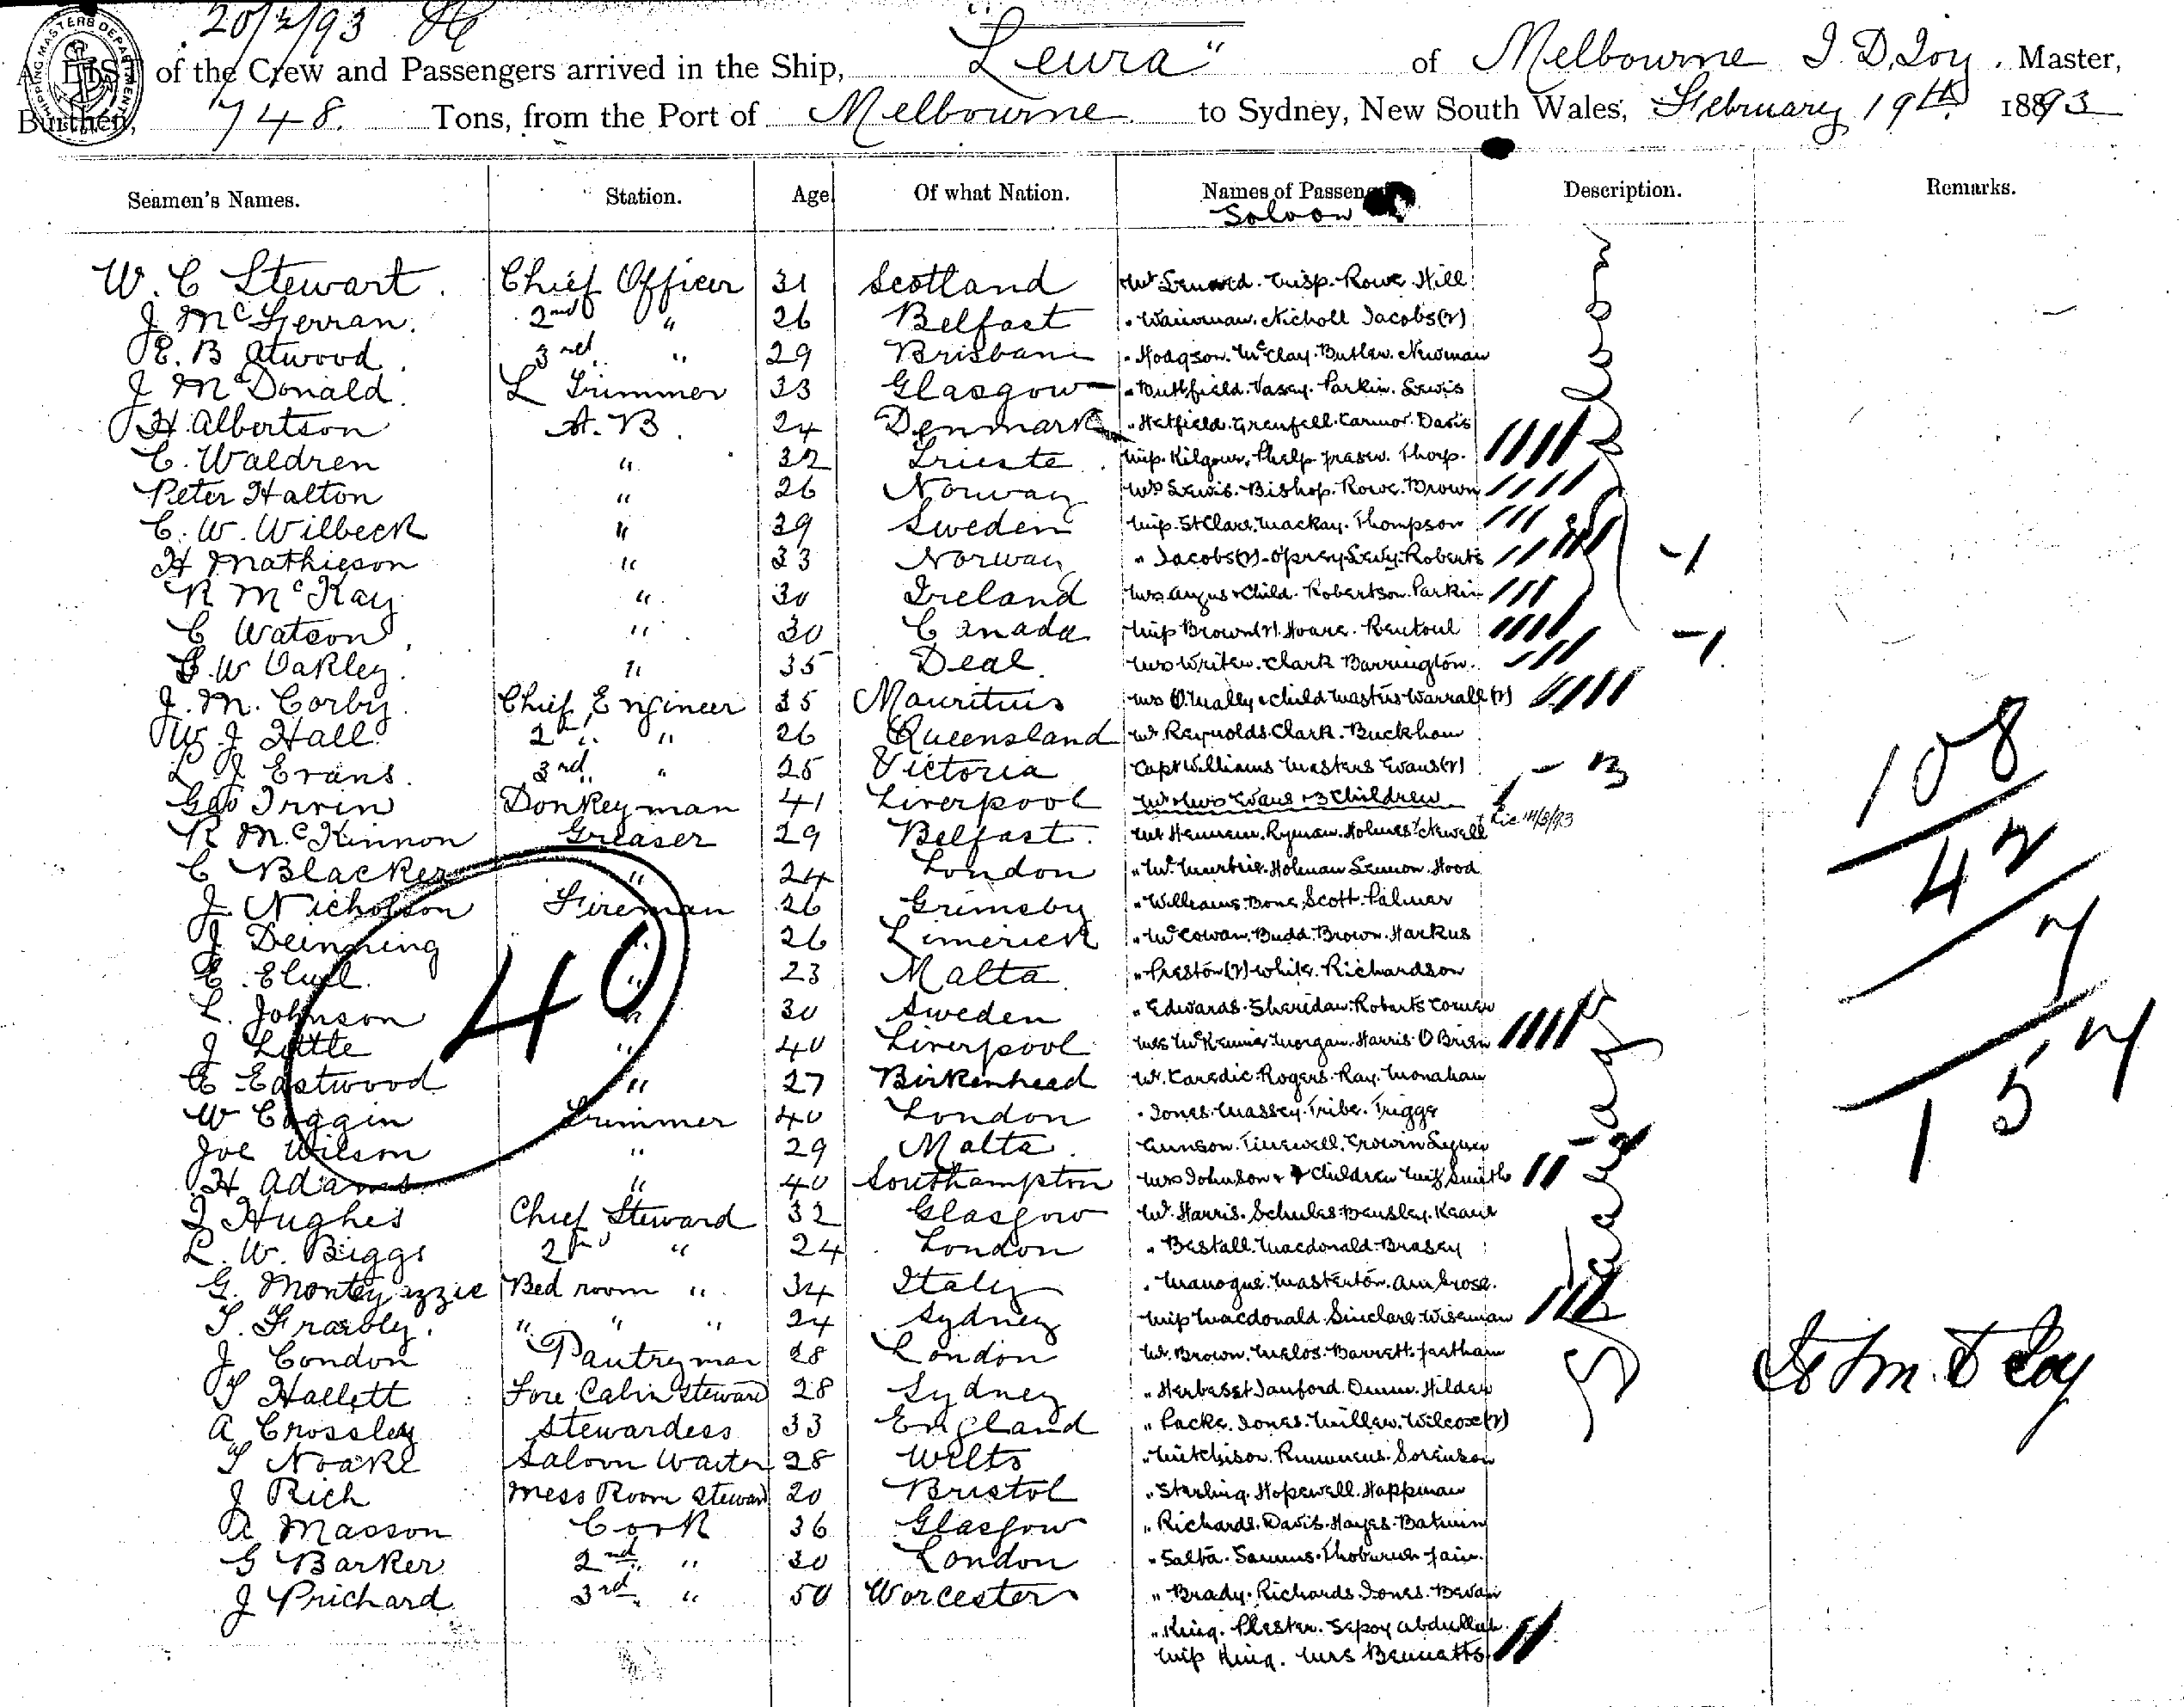 20/2/93
A LIST of the Crew and Passengers arrived in the Ship, "Leura" of Melbourne J. D. Loy. Master,
Burthen, 748. Tons, from the Port of Melbourne to Sydney, New South Wales, February 19th 1893
Seamen's Names. Station. Age Of what Nation. Names of Passengers Description. Remarks.
Saloon
W. C Stewart. Chief Officer 31 Scotland Rowe Hill
J McGerran. 2nd " 26 Belfast Nicholl Jacobs(2)
E. B Atwood. 3rd " 29 Brisbane " Hodgson. McClay. Butler. Newman
J McDonald. L Trimmer 33 Glasgow Vasey. Parkin. Lewis
H. Albertson A. B. 24 Denmark " Hatfield. Grenfell. Davis
C. Waldren " 32 Trieste Miss Kilgour. Phelp. Fraser. Thorp.
Peter Halton " 26 Norway Mrs Lewis. Bishop. Rowe. Brown
C. W. Wilbeck " 39 Sweden Miss St Clare. Mackay. Thompson
H Mathieson " 33 Norway " Jacobs(2) Levy. Roberts -1
R McKay " 30 Ireland Mrs Angus & Child. Robertson. Parkin
C Watson " 30 Canada Miss Brown(2). Hoare. Rentoul -1
G. W Oakley. " 35 Deal. Mrs Clark Barrington.
J. M. Corby. Chief Engineer 35 Mauritius Mrs O'Mally & child Masters Warrall (2)
W. J Hall. 2nd " 26 Queensland Mr Reynolds. Clark. Buckham
L J Evans. 3rd " 25 Victoria Capt Williams Masters Evans(2) - 3
Geo Irvin Donkeyman 41 Liverpool Mr & Mrs Evans & 3 Children
R McKinnon Greaser 29 Belfast. Ryman. Holmes. Newell 14/3/93
C Blacker " 24 London Holman Lennon. Hood
J Nicholson Fireman 26 Grimsby " Williams. Bone. Scott. Palmer
J Deinning " 26 Limerick " McCowan. Budd. Brown. Harkus
E. Elull. " 23 Malta. " Preston(2) White. Richardson
L. Johnson " 30 Sweden " Edwards. Sheridan. Roberts
J Little " 40 Liverpool Morgan. Harris. O Brien
E Eastwood " 27 Birkenhead Mr. Rogers. Ray. Monahan
W Coggin Trimmer 40 London " Jones. Massey. Tribe. Triggs
Joe Wilson " 29 Malta.
H Adams. " 40 Southampton Mrs Johnson & Children Miss Smith
J Hughes Chief Steward 32 Glasgow Mr. Harris. Beasley.
L. W. Biggs 2nd " 24 London " Bestall. Macdonald. Brasey
G. Bed room " 34 Italy " Manogue. Masterton. Ambrose.
T. Fraibly. " " " 24 Sydney Miss Macdonald. Sinclare. Wiseman
J Condon Pantryman 28 London Mr. Brown. Barrett.
T Hallett Fore Cabin Steward 28 Sydney " Hilder
A Crossley Stewardess 33 England " Jones. Miller. Wilcox(2)
T Noake Saloon Waiter 28 Wilts Sorenson
J Rich Mess Room Steward 20 Bristol " Starling. Hopewell. Happman
A Masson Cook 36 Glasgow " Richards. Davis. Hayes.
G Barker 2nd " 30 London
J Prichard 3rd " 50 Worcester " Brady. Richards. Jones. Bevan
" King. Plester. Sepoy Abdullah.
Miss King. Mrs Bennetts
40
108
42
7
157
Jno D Loy